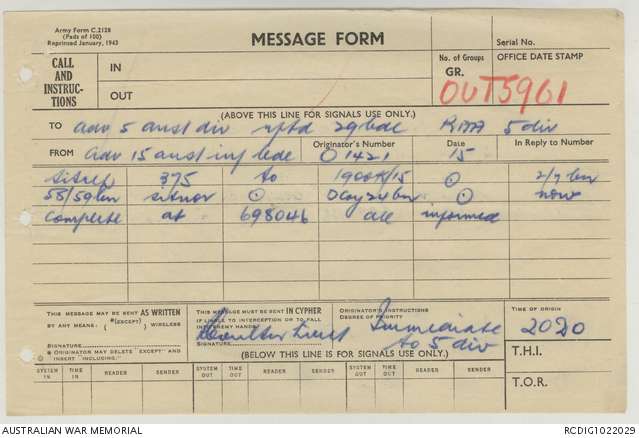 Army Form C.2128
(Pads of 100)
Reprinted January, 1943
MESSAGE FORM
Serial No.
CALL AND INSTRUCTIONS
IN
OUT
No. of Groups
GR.
OFFICE DATE STAMP
OUT5961
(ABOVE THIS LINE FOR SIGNALS USE ONLY.)
TO adv 5 aust div rptd 29 bde RAA 5 div
Originator's Number Date In Reply to Number
FROM adv 15 aust inf bde O1421 15
sitrep 375 to 1900K/15 ⊙ 2/7 bn
58/59 bn sitnor ⊙ D Coy 24 bn ⊙ now
complete at 698046 all informed
THIS MESSAGE MAY BE SENT AS WRITTEN
BY ANY MEANS. *(EXCEPT) WIRELESS
SIGNATURE
* ORIGINATOR MAY DELETE "EXCEPT" AND INSERT "INCLUDING."
THIS MESSAGE MUST BE SENT IN CYPHER
IF LIABLE TO INTERCEPTION OR TO FALL INTO ENEMY HANDS.
SIGNATURE
ORIGINATOR'S INSTRUCTIONS
DEGREE OF PRIORITY
Immediate
to 5 div
TIME OF ORIGIN
2020
T.H.I.
T.O.R.
(BELOW THIS LINE IS FOR SIGNALS USE ONLY.)
SYSTEM IN TIME IN READER SENDER SYSTEM OUT TIME OUT READER SENDER SYSTEM OUT TIME OUT READER SENDER
AUSTRALIAN WAR MEMORIAL
RCDIG1022029